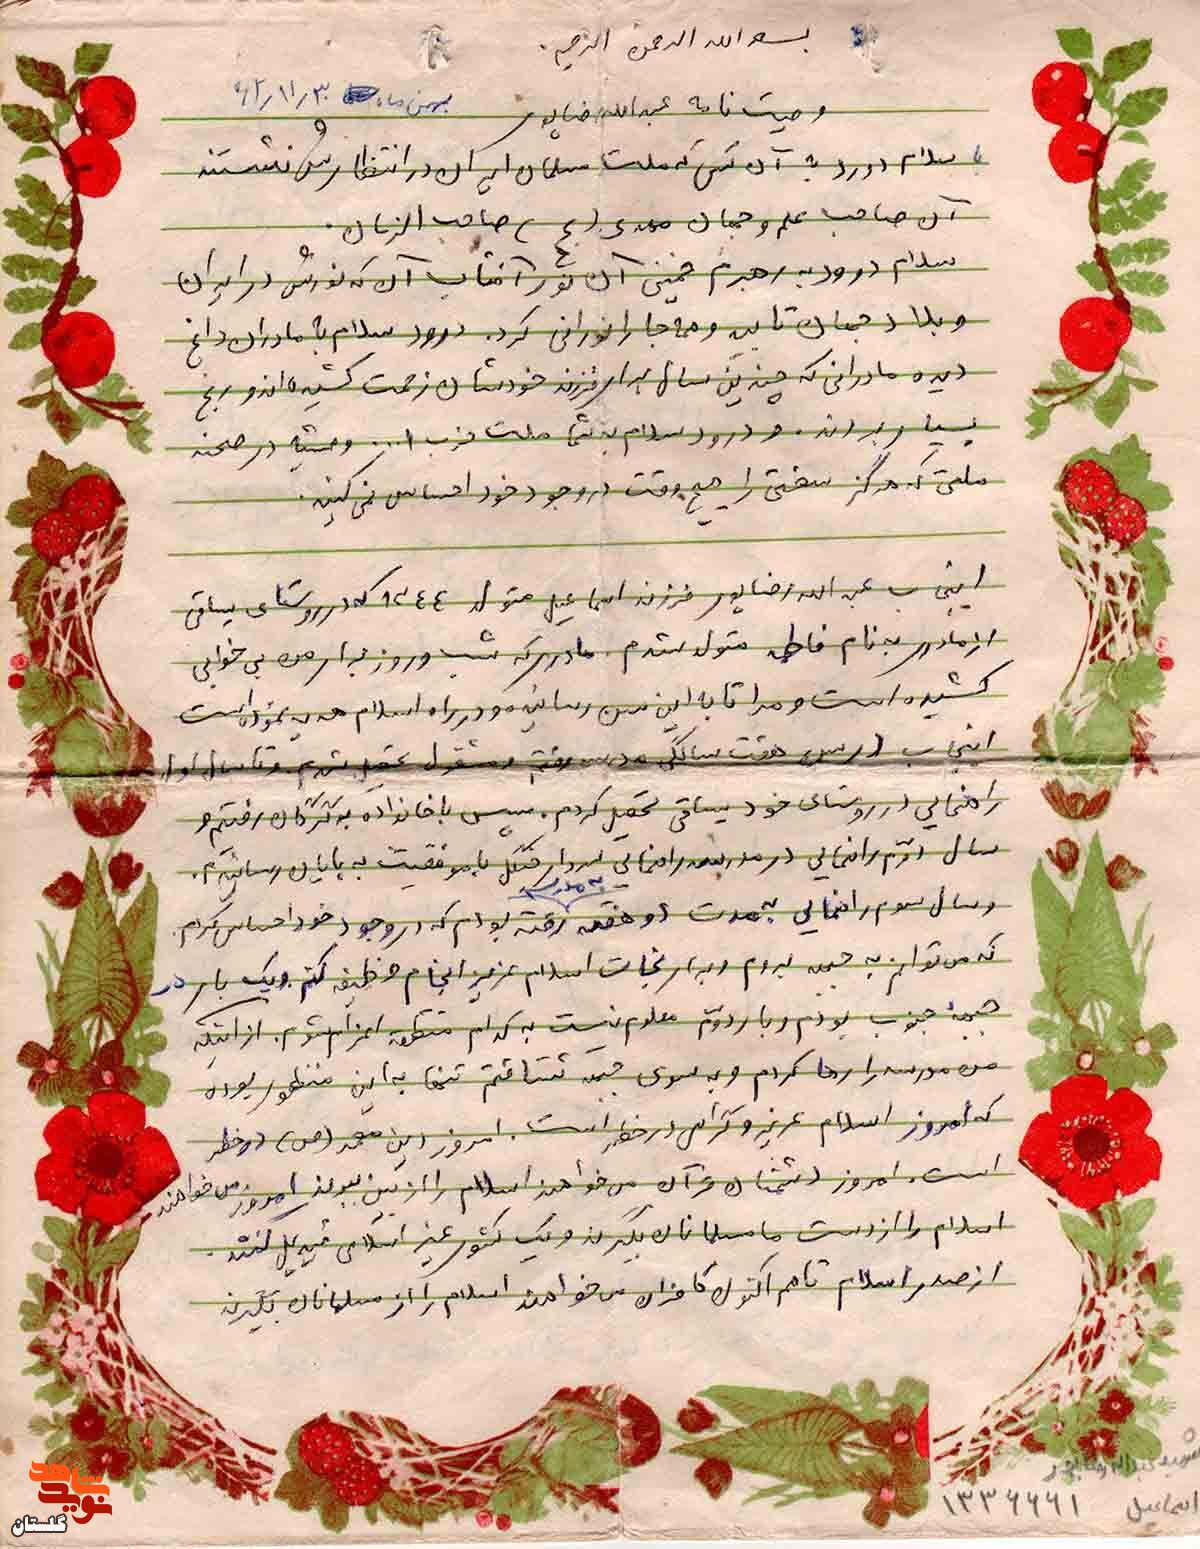 بسم الله الرحمن الرحیم.
بهمن ماه ۶۲/۱۱/۳۰
وصیت نامه عبدالله رضاپور
سلام درود به آن کسی که ملت مسلمان ایران در انتظارش نشستند
آن صاحب علم و جهان مهدی (عج) صاحب الزمان.
سلام درود به رهبرم خمینی آن نور آفتاب آن که نورش در ایران
و بلاد جهان تابید و همه جا را نورانی کرد. درود سلام به مادران داغ
دیده مادرانی که چندین سال برای فرزند خودشان زحمت کشیده اند و رنج
بسیار بردند. و درود سلام به شما ملت حزب ا... و همیشه در صحنه
ملتی که هرگز سختی را هیچ وقت در وجود خود احساس نمی کنید.
اینجانب عبدالله رضاپور فرزند اسماعیل متولد ۱۳۴۴ که در روستای یساقی
از مادری به نام فاطمه متولد شدم. مادری که شب و روز برای من بی خوابی
کشیده است و مرا تا به این سن رسانیده و در راه اسلام هدیه نموده است
اینجانب در سن هفت سالگی مدرسه رفتم و مشغول تحصیل شدم و تا سال اول
راهنمایی در روستای خود یساقی تحصیل کردم. سپس با خانواده به گرگان رفتیم و
سال دوم راهنمایی در مدرسه راهنمایی سردار جنگل با موفقیت به پایان رساندم.
و سال سوم راهنمایی به مدت دو هفته به مدرسه رفته بودم که در وجود خود احساس کردم
که می توانم به جبهه بروم و برای نجات اسلام عزیز انجام وظیفه کنم و یک بار در
جبهۀ جنوب بودم و بار دوم معلوم نیست به کدام منطقه اعزام شوم. از اینکه
من مدرسه را رها کردم و به سوی جبهه شتافتم تنها به این منظور بوده
که امروز اسلام عزیز و گرامی در خطر است. امروز دین محمد (ص) در خطر
است. امروز دشمنان قرآن می خواهند اسلام را از بین ببرند امروز می خواهند
اسلام را از دست ما مسلمانان بگیرند و یک کشور غیر اسلامی تبدیل کنند.
از صدر اسلام تا هم اکنون کافران می خواهند اسلام را از مسلمانان بگیرند
شهید عبدالله رضاپور
اسماعیل ۱۳۳۶۶۶۱
نوید شاهد
گلستان